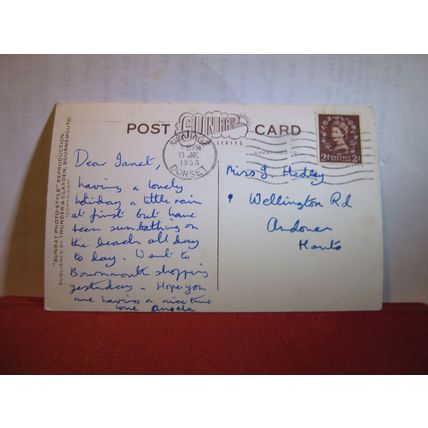 POST CARD
SUNRAY
SERIES
SWANAGE
13 JNE
1956
DORSET
2D POSTAGE REVENUE 2D
Dear Janet,
having a lovely
holiday a little rain
at first but have
been sunbathing on
the beach all day
to day. Went to
Bournemouth shopping
yesterday. Hope you
are having a nice time
love Angela
Miss J. Hedley
Wellington Rd
Andover
Hants
"SUNRAY PHOTO-STYLE" REPRODUCTION
PUBLISHED BY THUNDER & CLAYDEN, BOURNEMOUTH.